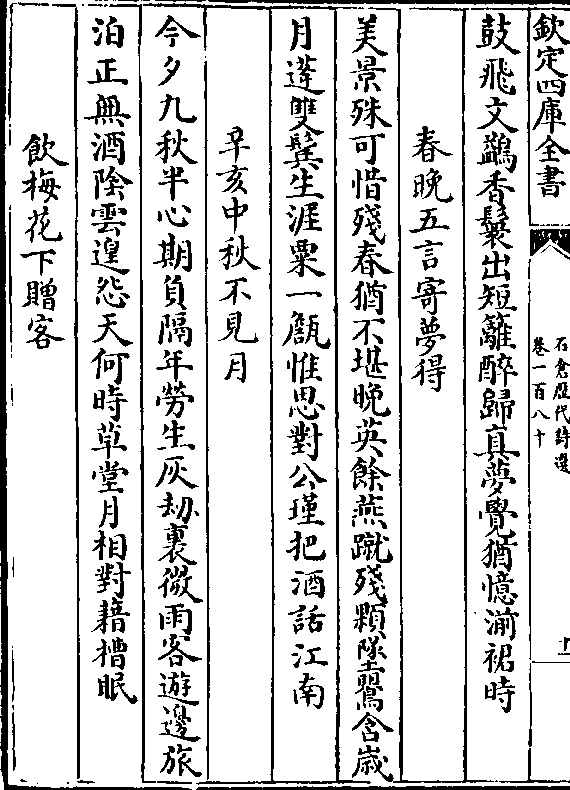 欽定四庫全書
石倉歷代詩選
卷一百八十
十
鼓飛文鷁香鬟出短籬醉歸真夢覺猶憶湔裙時
春晚五言寄夢得
美景殊可惜殘春猶不堪晚英餘燕蹴殘顆墜鸎含歲
月蓬雙鬂生涯粟一甔惟思對公瑾把酒話江南
辛亥中秋不見月
今夕九秋半心期負隔年勞生灰刼裏微雨客遊邊旅
泊正無酒陰雲遑怨天何時草堂月相對藉槽眠
飲梅花下贈客